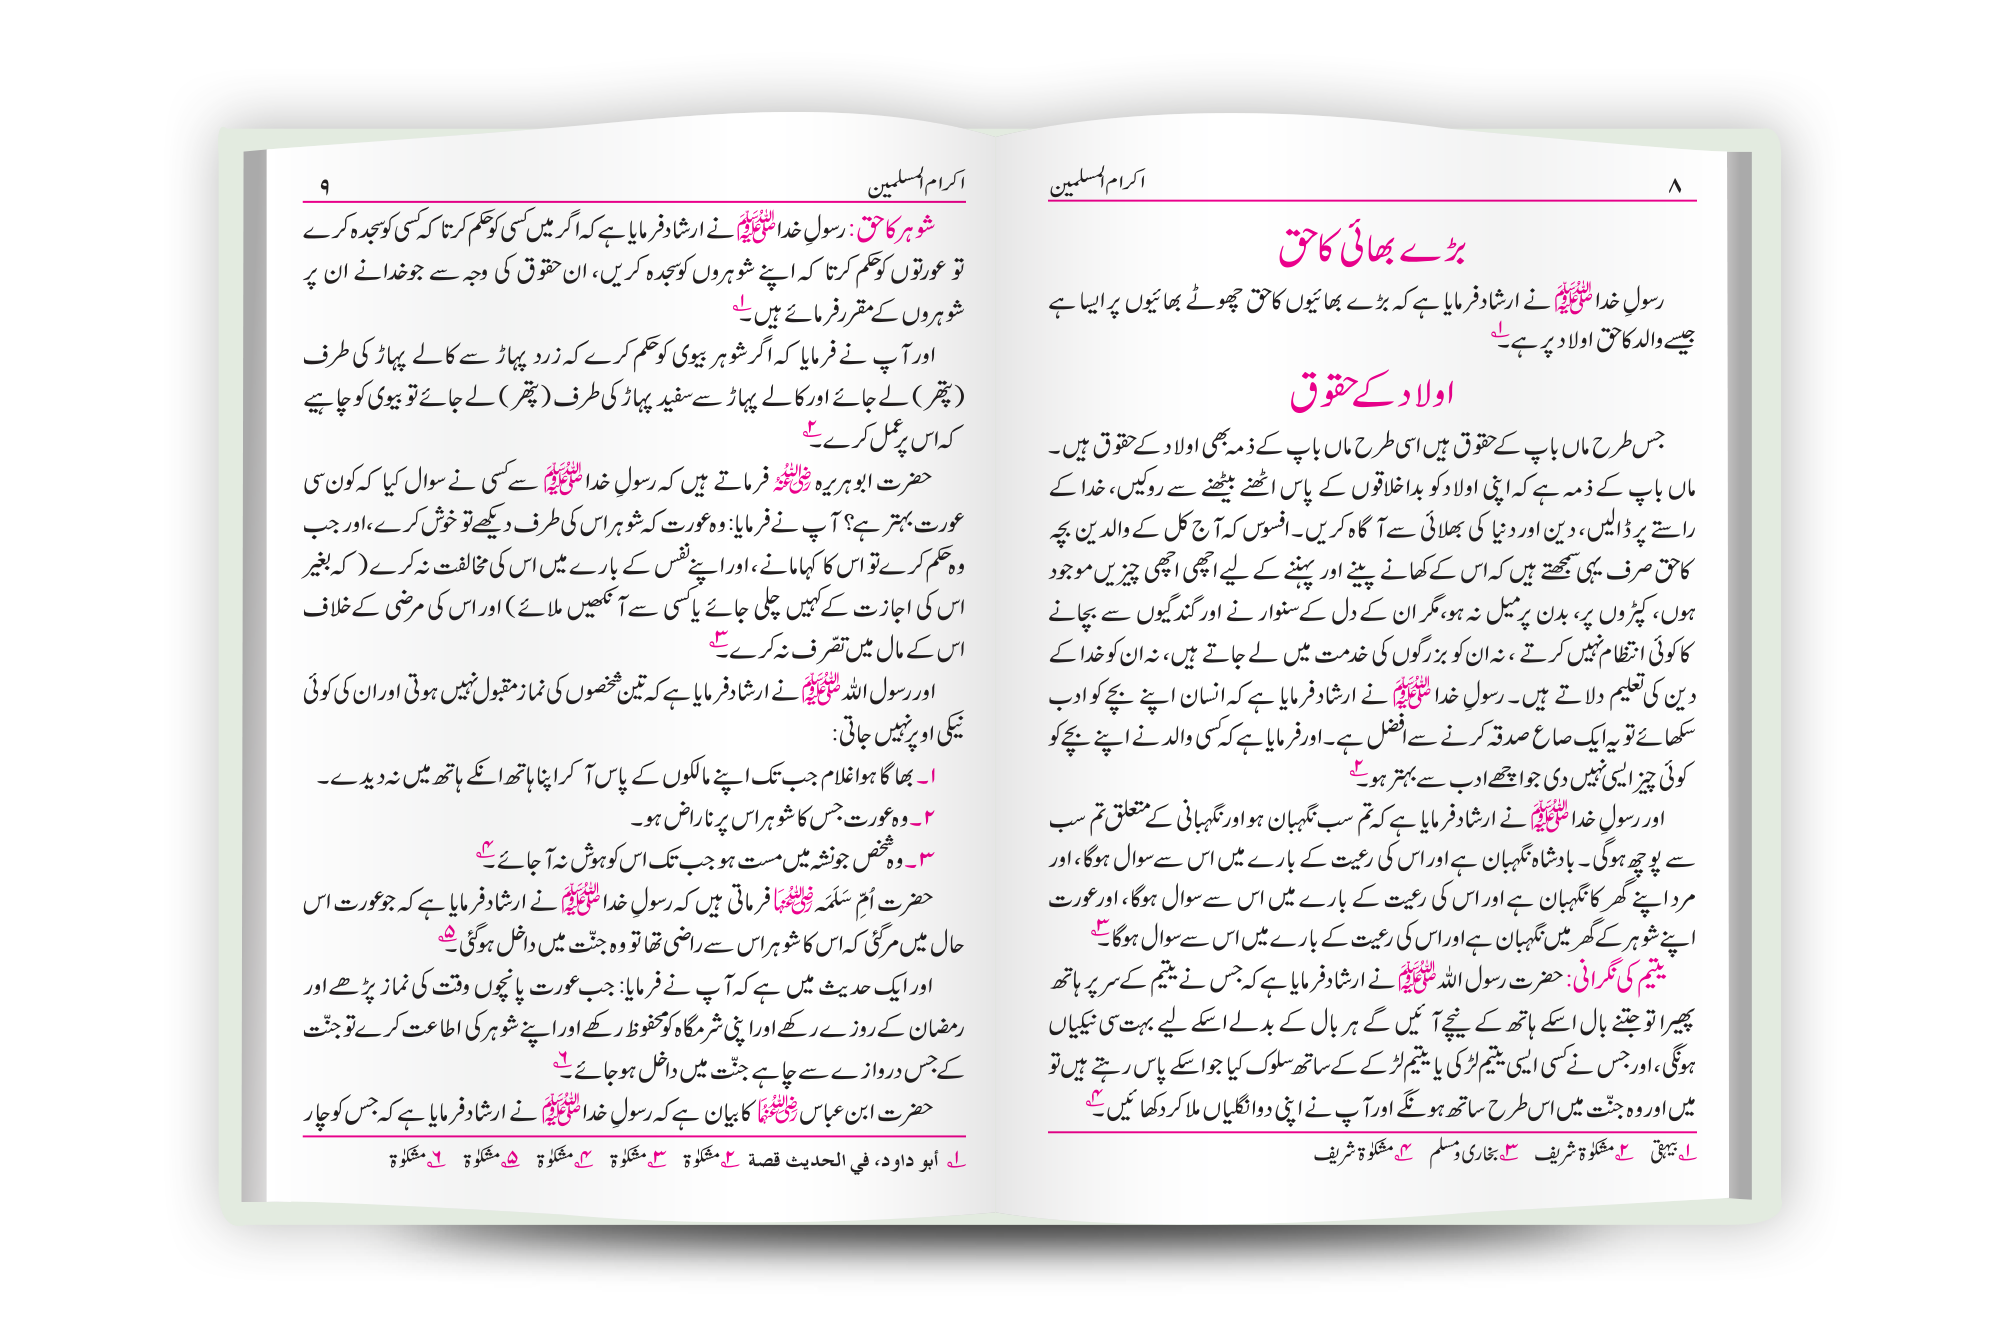 ۸
اکرام المسلمین
بڑے بھائی کا حق
رسولِ خدا ﷺ نے ارشاد فرمایا ہے کہ بڑے بھائیوں کا حق چھوٹے بھائیوں پر ایسا ہے
جیسے والد کا حق اولاد پر ہے۔۱؎
اولاد کے حقوق
جس طرح ماں باپ کے حقوق ہیں اسی طرح ماں باپ کے ذمہ بھی اولاد کے حقوق ہیں۔
ماں باپ کے ذمہ ہے کہ اپنی اولاد کو بداخلاقوں کے پاس اٹھنے بیٹھنے سے روکیں، خدا کے
راستے پر ڈالیں، دین اور دنیا کی بھلائی سے آگاہ کریں۔ افسوس کہ آج کل کے والدین بچہ
کا حق صرف یہی سمجھتے ہیں کہ اس کے کھانے پینے اور پہننے کے لیے اچھی اچھی چیزیں موجود
ہوں، کپڑوں پر، بدن پر میل نہ ہو، مگر ان کے دل کے سنوارنے اور گندگیوں سے بچانے
کا کوئی انتظام نہیں کرتے ، نہ ان کو بزرگوں کی خدمت میں لے جاتے ہیں، نہ ان کو خدا کے
دین کی تعلیم دلاتے ہیں۔ رسولِ خدا ﷺ نے ارشاد فرمایا ہے کہ انسان اپنے بچے کو ادب
سکھائے تو یہ ایک صاع صدقہ کرنے سے افضل ہے۔ اور فرمایا ہے کہ کسی والد نے اپنے بچے کو
کوئی چیز ایسی نہیں دی جو اچھے ادب سے بہتر ہو۔۲؎
اور رسولِ خدا ﷺ نے ارشاد فرمایا ہے کہ تم سب نگہبان ہو اور نگہبانی کے متعلق تم سب
سے پوچھ ہوگی۔ بادشاہ نگہبان ہے اور اس کی رعیت کے بارے میں اس سے سوال ہوگا، اور
مرد اپنے گھر کا نگہبان ہے اور اس کی رعیت کے بارے میں اس سے سوال ہوگا، اور عورت
اپنے شوہر کے گھر میں نگہبان ہے اور اس کی رعیت کے بارے میں اس سے سوال ہوگا۔۳؎
یتیم کی نگرانی: حضرت رسول اللہ ﷺ نے ارشاد فرمایا ہے کہ جس نے یتیم کے سر پر ہاتھ
پھیرا تو جتنے بال اسکے ہاتھ کے نیچے آئیں گے ہر بال کے بدلے اسکے لیے بہت سی نیکیاں
ہونگی، اور جس نے کسی ایسی یتیم لڑکی یا یتیم لڑکے کے ساتھ سلوک کیا جو اسکے پاس رہتے ہیں تو
میں اور وہ جنّت میں اس طرح ساتھ ہونگے اور آپ نے اپنی دو انگلیاں ملا کر دکھائیں۔۴؎
۱؎ بیہقی ۲؎ مشکوٰۃ شریف ۳؎ بخاری و مسلم ۴؎ مشکوٰۃ شریف
اکرام المسلمین
۹
شوہر کا حق: رسولِ خدا ﷺ نے ارشاد فرمایا ہے کہ اگر میں کسی کو حکم کرتا کہ کسی کو سجدہ کرے
تو عورتوں کو حکم کرتا کہ اپنے شوہروں کو سجدہ کریں، ان حقوق کی وجہ سے جو خدا نے ان پر
شوہروں کے مقرر فرمائے ہیں۔۱؎
اور آپ نے فرمایا کہ اگر شوہر بیوی کو حکم کرے کہ زرد پہاڑ سے کالے پہاڑ کی طرف
(پتھر) لے جائے اور کالے پہاڑ سے سفید پہاڑ کی طرف (پتھر) لے جائے تو بیوی کو چاہیے
کہ اس پر عمل کرے۔۲؎
حضرت ابو ہریرہ رضی اللہ عنہ فرماتے ہیں کہ رسولِ خدا ﷺ سے کسی نے سوال کیا کہ کون سی
عورت بہتر ہے؟ آپ نے فرمایا: وہ عورت کہ شوہر اس کی طرف دیکھے تو خوش کرے، اور جب
وہ حکم کرے تو اس کا کہا مانے، اور اپنے نفس کے بارے میں اس کی مخالفت نہ کرے (کہ بغیر
اس کی اجازت کے کہیں چلی جائے یا کسی سے آنکھیں ملائے) اور اس کی مرضی کے خلاف
اس کے مال میں تصّرف نہ کرے۔۳؎
اور رسول اللہ ﷺ نے ارشاد فرمایا ہے کہ تین شخصوں کی نماز مقبول نہیں ہوتی اور ان کی کوئی
نیکی اوپر نہیں جاتی:
۱۔ بھاگا ہوا غلام جب تک اپنے مالکوں کے پاس آ کر اپنا ہاتھ انکے ہاتھ میں نہ دیدے۔
۲۔ وہ عورت جس کا شوہر اس پر ناراض ہو۔
۳۔ وہ شخص جو نشہ میں مست ہو جب تک اس کو ہوش نہ آجائے۔۴؎
حضرت اُمِّ سَلَمَہ رضی اللہ عنہا فرماتی ہیں کہ رسولِ خدا ﷺ نے ارشاد فرمایا ہے کہ جو عورت اس
حال میں مر گئی کہ اس کا شوہر اس سے راضی تھا تو وہ جنّت میں داخل ہوگئی۔۵؎
اور ایک حدیث میں ہے کہ آپ نے فرمایا: جب عورت پانچوں وقت کی نماز پڑھے اور
رمضان کے روزے رکھے اور اپنی شرمگاہ کو محفوظ رکھے اور اپنے شوہر کی اطاعت کرے تو جنّت
کے جس دروازے سے چاہے جنّت میں داخل ہوجائے۔۶؎
حضرت ابن عباس رضی اللہ عنہما کا بیان ہے کہ رسولِ خدا ﷺ نے ارشاد فرمایا ہے کہ جس کو چار
۱؎ أبو داود، في الحديث قصة ۲؎ مشکوٰۃ ۳؎ مشکوٰۃ ۴؎ مشکوٰۃ ۵؎ مشکوٰۃ ۶؎ مشکوٰۃ